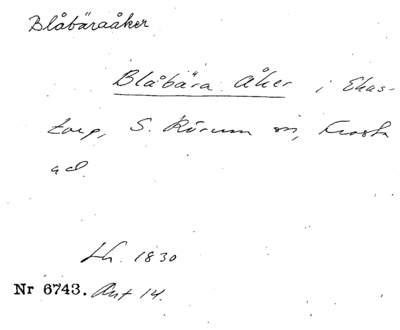 Blåbäraåker
Blåbära åker i Ekas-
torp, S. Rörum sn, Frosta
ad.
Lh. 1830
Nr 6743. Ant 14.